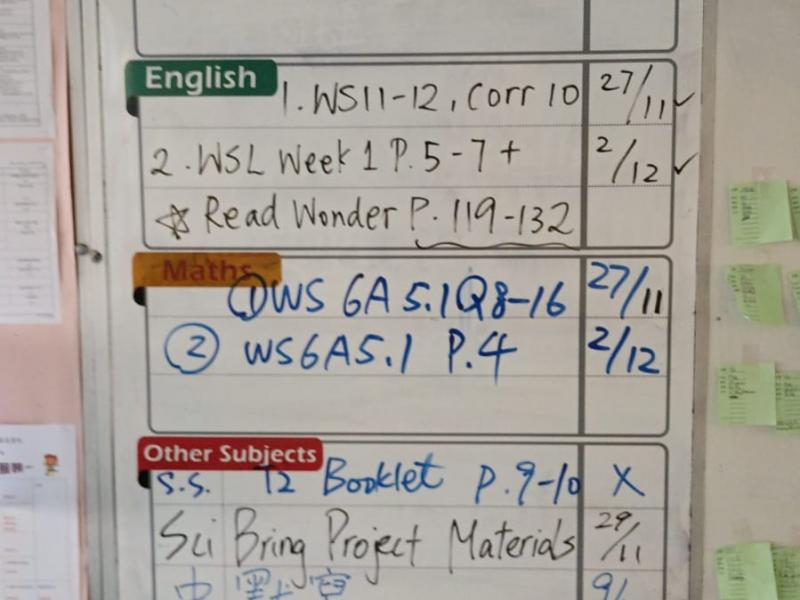 English
1. WS11-12, Corr 10 27/11 ✓
2. WSL Week 1 P. 5-7 + 2/12 ✓
☆ Read Wonder P. 119-132
Maths
① WS 6A 5.1 Q8-16 27/11
② WS6A5.1 P.4 2/12
Other Subjects
S.S. T2 Booklet P.9-10 X
Sci Bring Project Materials 29/11
中